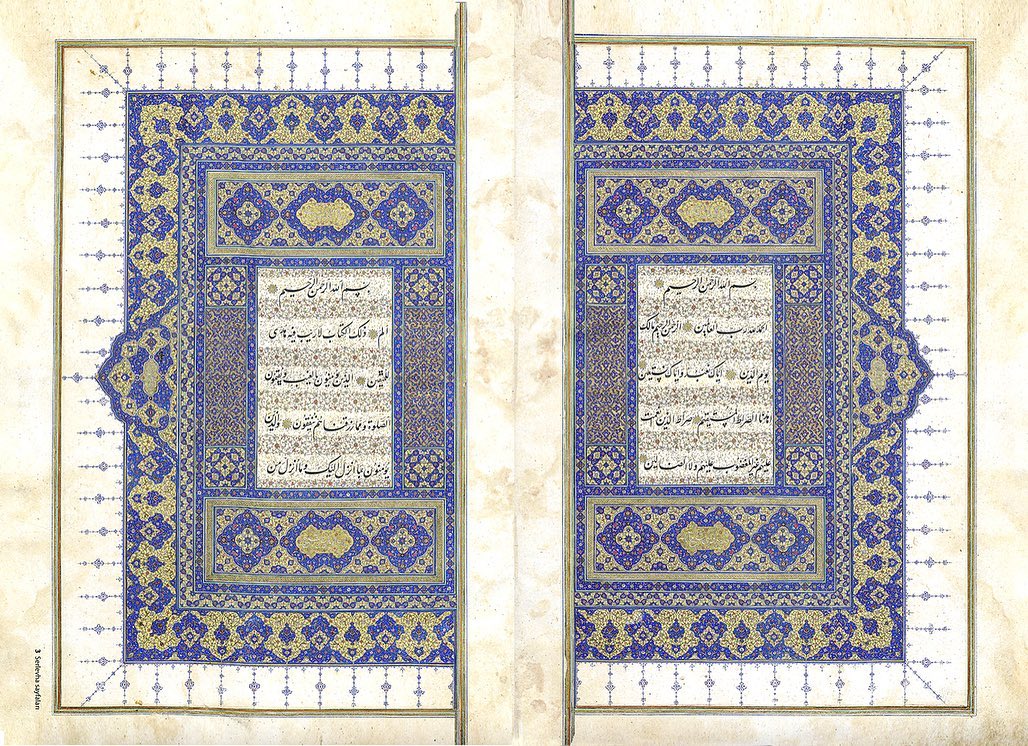 بسم الله الرحمن الرحيم
الحمد لله رب العالمين الرحمن الرحيم مالك
يوم الدين اياك نعبد واياك نستعين
اهدنا الصراط المستقيم صراط الذين انعمت
عليهم غير المغضوب عليهم ولا الضالين
بسم الله الرحمن الرحيم
الم ذلك الكتاب لا ريب فيه هدى
للمتقين الذين يومنون بالغيب ويقيمون
الصلوة ومما رزقناهم ينفقون والذين
يومنون بما انزل اليك وما انزل من
3 Serlevha sayfaları